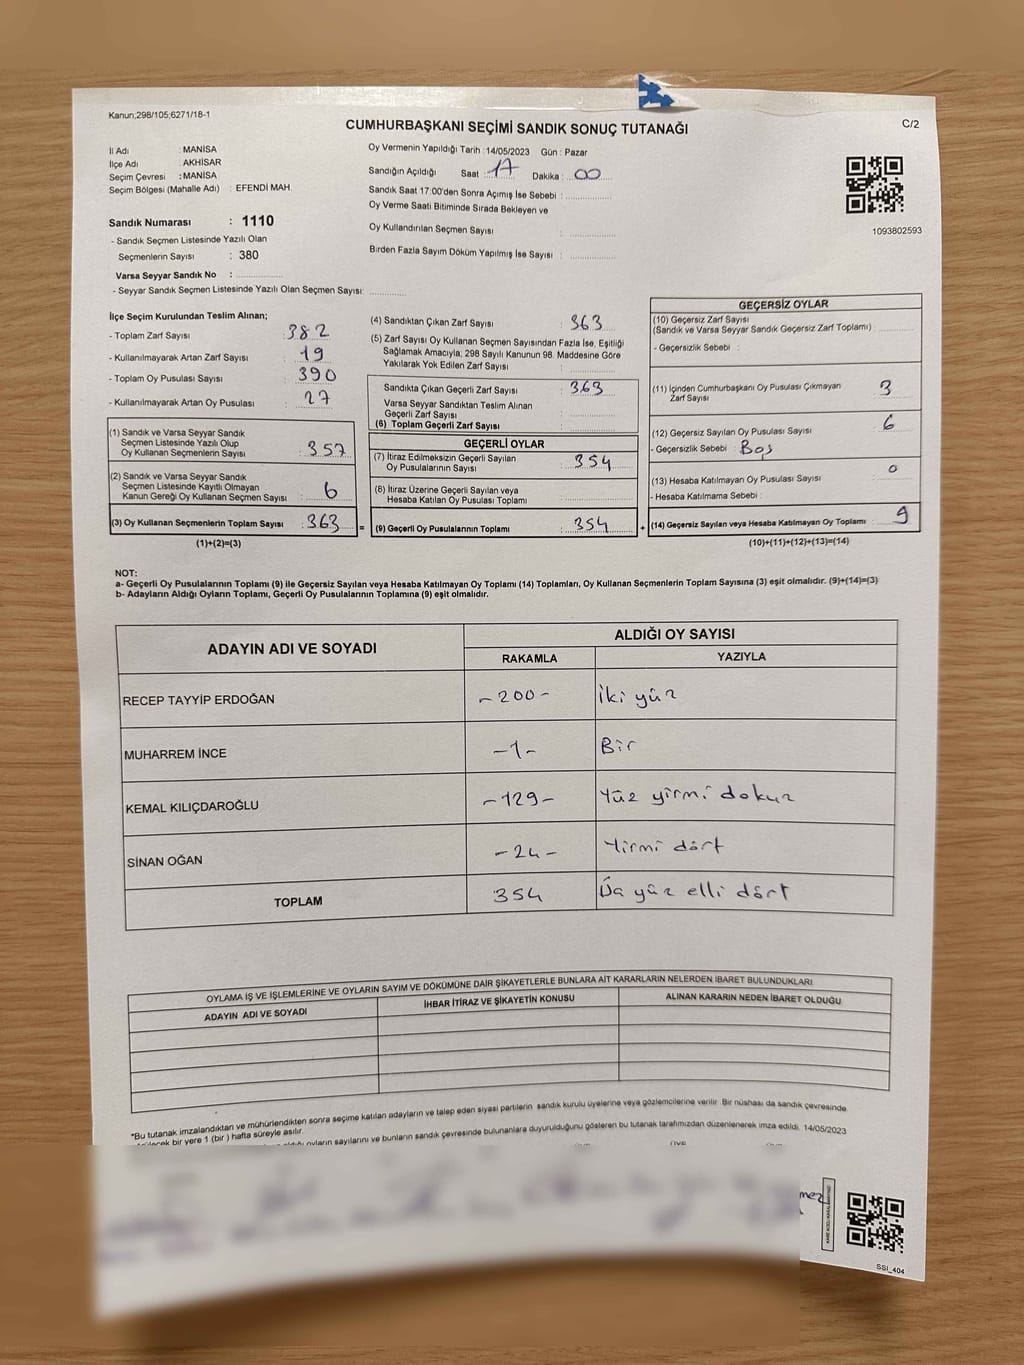 Kanun;298/105;6271/18-1
CUMHURBAŞKANI SEÇİMİ SANDIK SONUÇ TUTANAĞI
C/2
İl Adı : MANİSA
İlçe Adı : AKHİSAR
Seçim Çevresi : MANİSA
Seçim Bölgesi (Mahalle Adı) : EFENDİ MAH.
Oy Vermenin Yapıldığı Tarih : 14/05/2023 Gün : Pazar
Sandığın Açıldığı Saat : 17 Dakika : 00
Sandık Saat 17:00'den Sonra Açımış İse Sebebi :
Oy Verme Saati Bitiminde Sırada Bekleyen ve
Oy Kullandırılan Seçmen Sayısı :
Birden Fazla Sayım Döküm Yapılmış İse Sayısı :
1093802593
Sandık Numarası : 1110
- Sandık Seçmen Listesinde Yazılı Olan
Seçmenlerin Sayısı : 380
Varsa Seyyar Sandık No :
- Seyyar Sandık Seçmen Listesinde Yazılı Olan Seçmen Sayısı:
İlçe Seçim Kurulundan Teslim Alınan;
- Toplam Zarf Sayısı : 382
- Kullanılmayarak Artan Zarf Sayısı : 19
- Toplam Oy Pusulası Sayısı : 390
- Kullanılmayarak Artan Oy Pusulası : 27
(1) Sandık ve Varsa Seyyar Sandık
Seçmen Listesinde Yazılı Olup
Oy Kullanan Seçmenlerin Sayısı : 357
(2) Sandık ve Varsa Seyyar Sandık
Seçmen Listesinde Kayıtlı Olmayan
Kanun Gereği Oy Kullanan Seçmen Sayısı : 6
(3) Oy Kullanan Seçmenlerin Toplam Sayısı : 363
(1)+(2)=(3)
(4) Sandıktan Çıkan Zarf Sayısı : 363
(5) Zarf Sayısı Oy Kullanan Seçmen Sayısından Fazla İse, Eşitliği
Sağlamak Amacıyla; 298 Sayılı Kanunun 98. Maddesine Göre
Yakılarak Yok Edilen Zarf Sayısı :
Sandıkta Çıkan Geçerli Zarf Sayısı : 363
Varsa Seyyar Sandıktan Teslim Alınan
Geçerli Zarf Sayısı :
(6) Toplam Geçerli Zarf Sayısı :
GEÇERLİ OYLAR
(7) İtiraz Edilmeksizin Geçerli Sayılan
Oy Pusulalarının Sayısı : 354
(8) İtiraz Üzerine Geçerli Sayılan veya
Hesaba Katılan Oy Pusulası Toplamı :
= (9) Geçerli Oy Pusulalarının Toplamı : 354 +
GEÇERSİZ OYLAR
(10) Geçersiz Zarf Sayısı
(Sandık ve Varsa Seyyar Sandık Geçersiz Zarf Toplamı) :
- Geçersizlik Sebebi :
(11) İçinden Cumhurbaşkanı Oy Pusulası Çıkmayan
Zarf Sayısı : 3
(12) Geçersiz Sayılan Oy Pusulası Sayısı : 6
- Geçersizlik Sebebi : Boş
(13) Hesaba Katılmayan Oy Pusulası Sayısı : 0
- Hesaba Katılmama Sebebi :
(14) Geçersiz Sayılan veya Hesaba Katılmayan Oy Toplamı : 9
(10)+(11)+(12)+(13)=(14)
NOT:
a- Geçerli Oy Pusulalarının Toplamı (9) ile Geçersiz Sayılan veya Hesaba Katılmayan Oy Toplamı (14) Toplamları, Oy Kullanan Seçmenlerin Toplam Sayısına (3) eşit olmalıdır. (9)+(14)=(3)
b- Adayların Aldığı Oyların Toplamı, Geçerli Oy Pusulalarının Toplamına (9) eşit olmalıdır.
ADAYIN ADI VE SOYADI
ALDIĞI OY SAYISI
RAKAMLA YAZIYLA
RECEP TAYYİP ERDOĞAN -200- İki yüz
MUHARREM İNCE -1- Bir
KEMAL KILIÇDAROĞLU -129- Yüz yirmi dokuz
SİNAN OĞAN -24- Yirmi dört
TOPLAM 354 Üç yüz elli dört
OYLAMA İŞ VE İŞLEMLERİNE VE OYLARIN SAYIM VE DÖKÜMÜNE DAİR ŞİKAYETLERLE BUNLARA AİT KARARLARIN NELERDEN İBARET BULUNDUKLARI
ADAYIN ADI VE SOYADI İHBAR İTİRAZ VE ŞİKAYETİN KONUSU ALINAN KARARIN NEDEN İBARET OLDUĞU
*Bu tutanak imzalandıktan ve mühürlendikten sonra seçime katılan adayların ve talep eden siyasi partilerin sandık kurulu üyelerine veya gözlemcilerine verilir. Bir nüshası da sandık çevresinde
bir yere 1 (bir ) hafta süreyle asılır.
oyların sayılarını ve bunların sandık çevresinde bulunanlara duyurulduğunu gösteren bu tutanak tarafımızdan düzenlenerek imza edildi. 14/05/2023
SSI_404